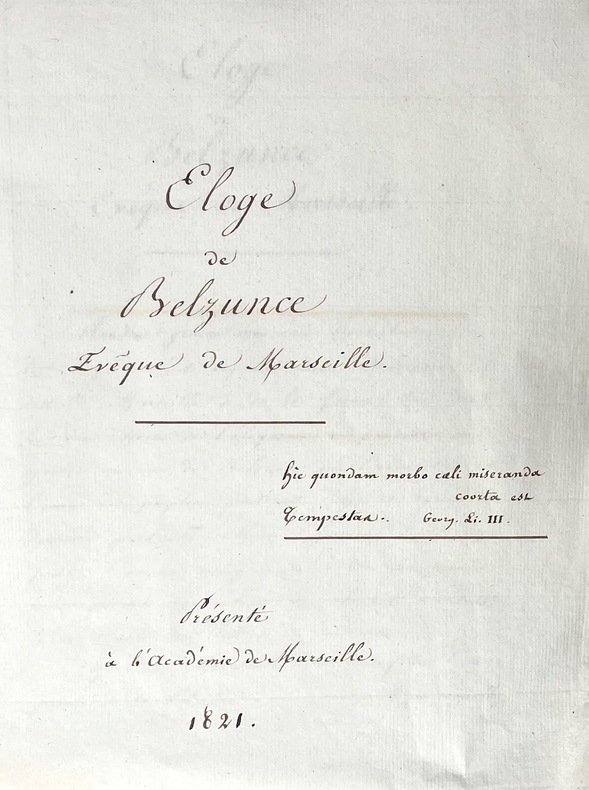 Eloge
de
Belzunce
Evêque de Marseille.
hic quondam morbo cæli miseranda
coorta est
Tempestas.. Georg. Li. III.
Présenté
à l'académie de Marseille.
1821.